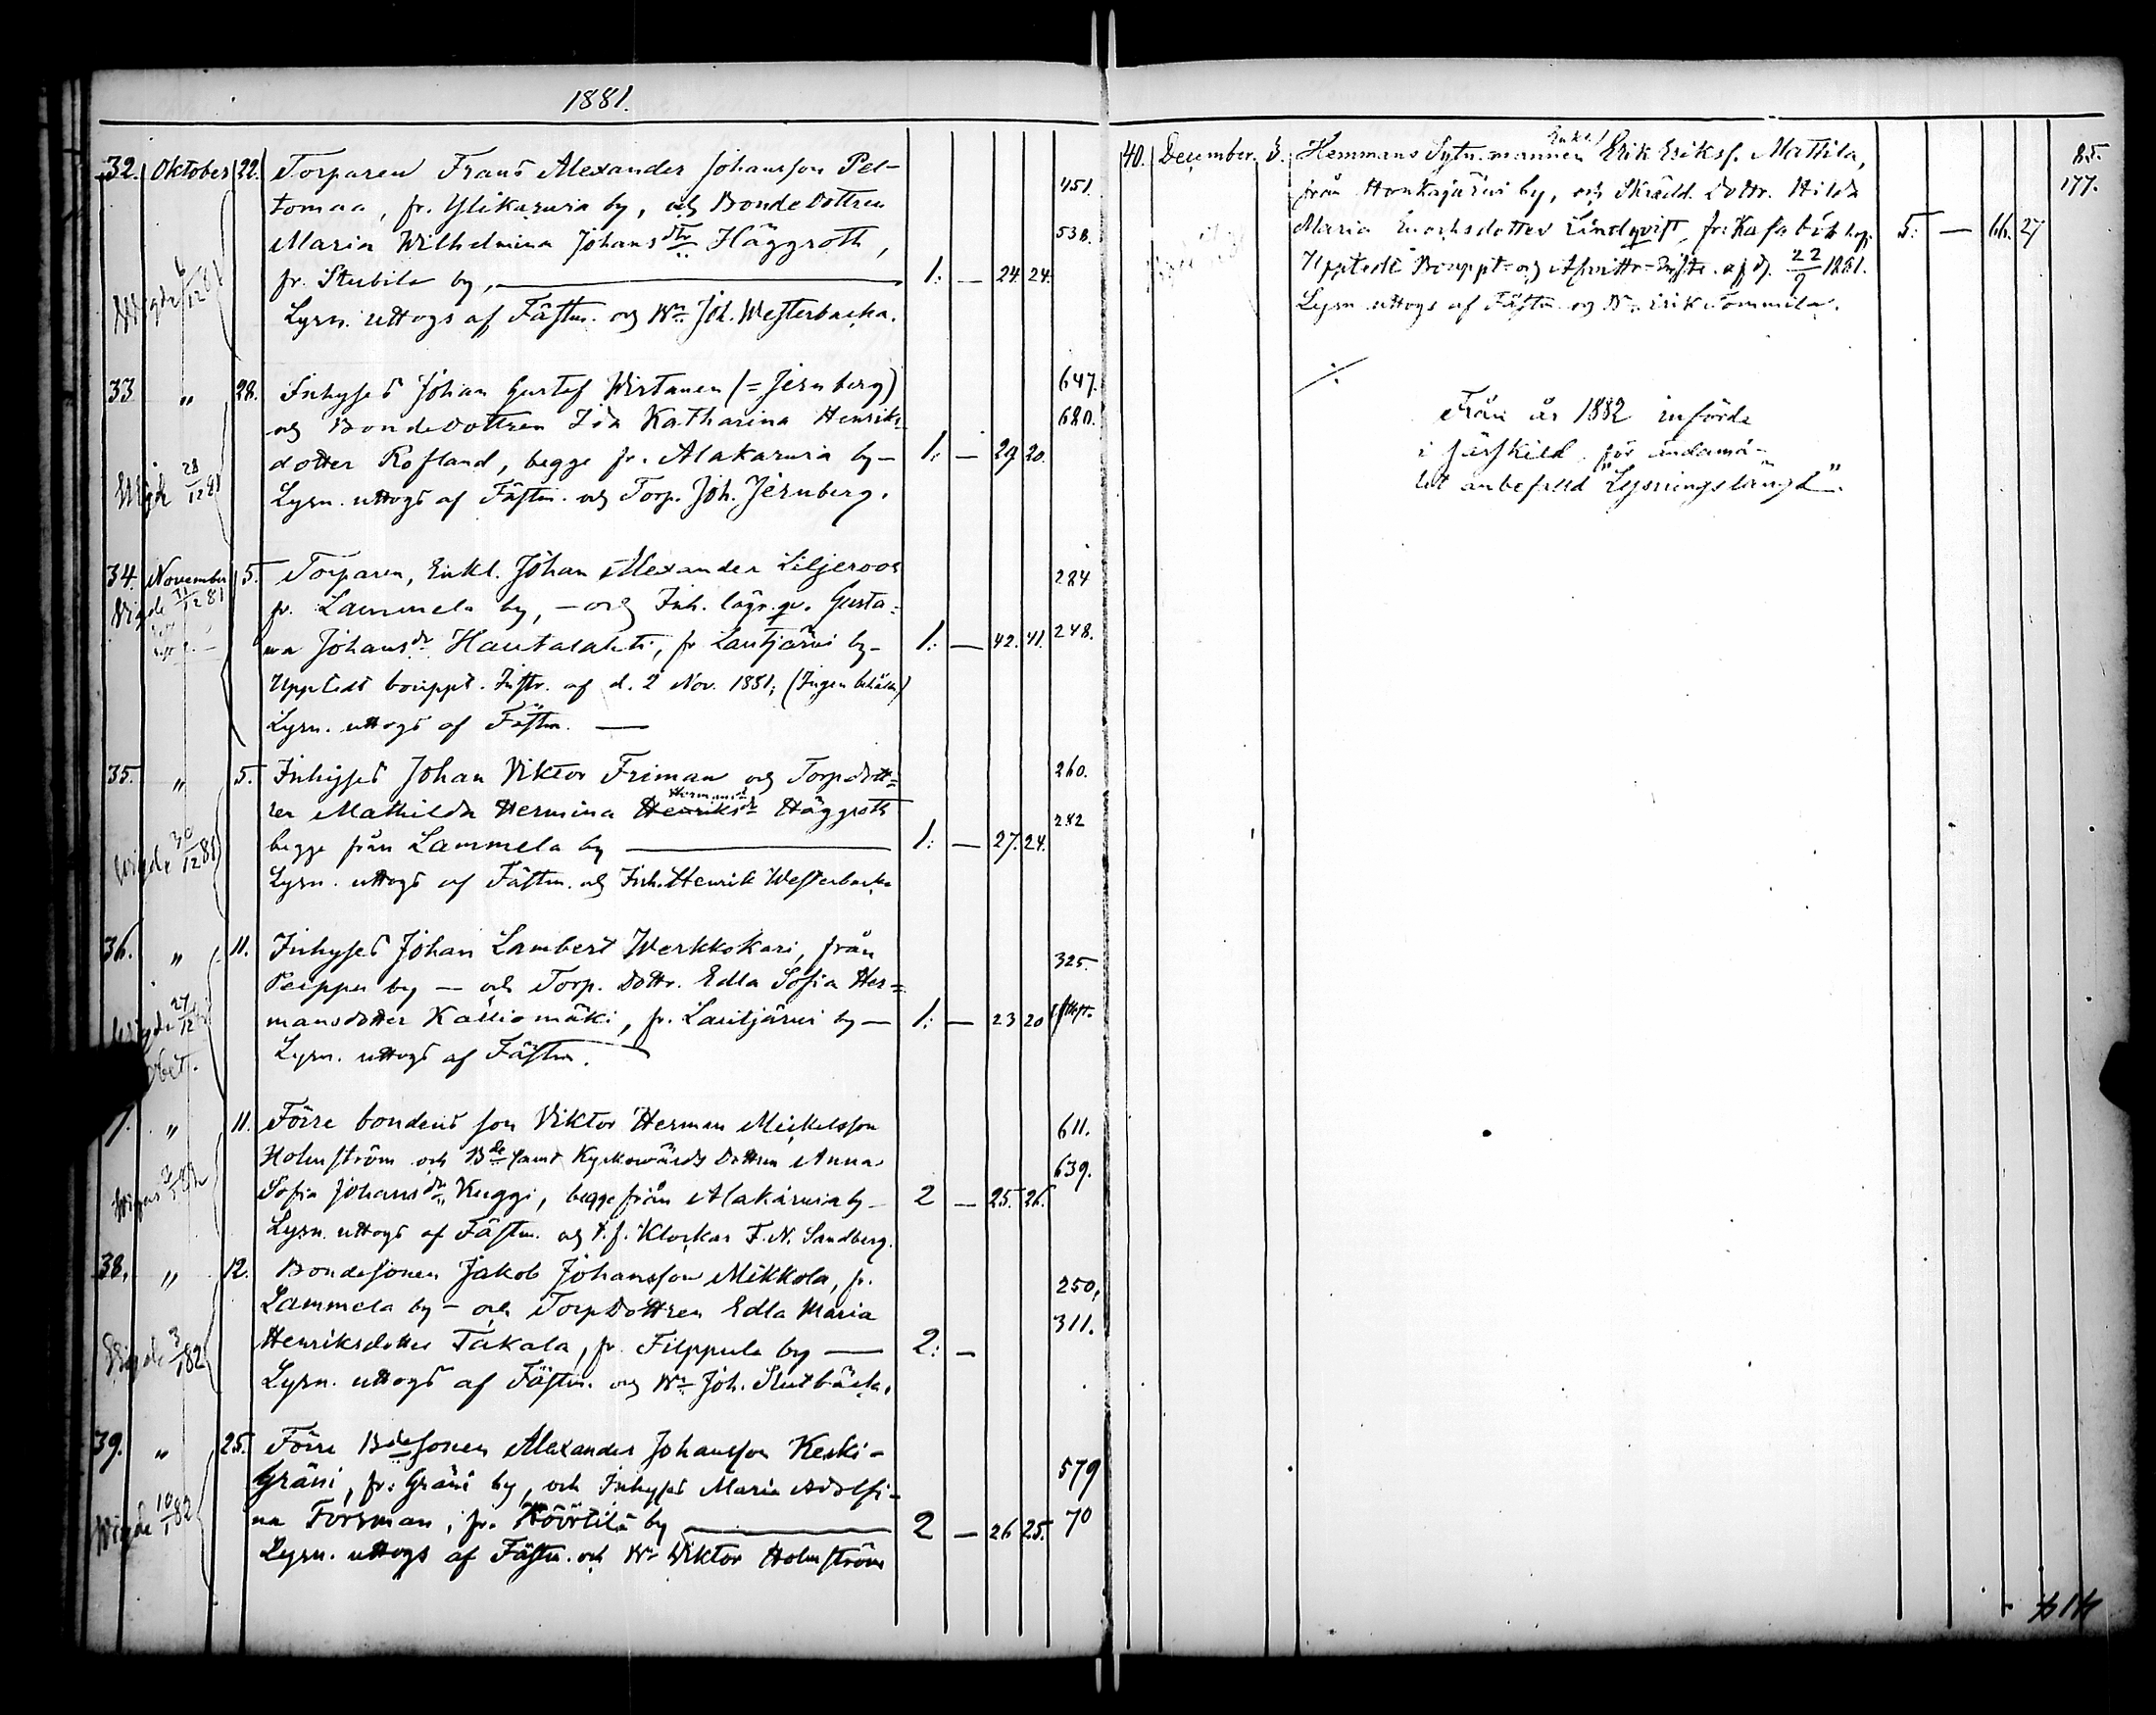 1881.
32. Oktober 22. Torparen Frans Alexander Johansson Pel-
tomaa, fr. Ylikarvia by, och Bondedottren 451.
Maria Wilhelmina Johansdtr Häggroth, 538.
fr. Stubila by, 1: — 24. 24.
Wigde 6/12 81
Lysn. uttogs af Fästm. och Bn. Joh. Westerbacka.
33 " 28. Inhyses Johan Gustaf Wirtanen (= Jernberg) 647.
och Bondedottren Ida Katharina Henriks- 680.
dotter Rosland, begge fr. Alakarvia by — 1: — 29 20.
Wigde 28/12 81
Lysn. uttogs af Fästm. och Torp. Joh. Jernberg.
34. November 5. Torparen, Enkl. Johan Alexander Liljeroos 284
Vigde 31/12 81
fr. Lammela by, — och Inh. lägr. qv. Gusta-
va Johansdr Hautalahti, fr Lautjärvi by — 1: — 42. 41. 248.
Upptedt bouppt. Instr. af d. 2 Nov. 1881; (Ingen behålln)
Lysn. uttogs af Fästm. —
35. " 5. Inhyses Johan Viktor Friman och Torpdott- 260.
Hermansdr
ren Mathilda Hermina Henriksdr Häggroth 282
begge från Lammela by 1: — 27. 24.
Wigde 30/12 81
Lysn. uttogs af Fästm. och Inh. Henrik Westerbacka
36. " 11. Inhyses Johan Lambert Werkkokari, från 325.
Peippu by — och Torp. Dottr. Edla Sofia Her-
mansdotter Kalliomäki, fr. Lautjärvi by — 1: — 23 20
Wigde 27/12
Lysn. uttogs af Fästm.
7. " 11. Förre bondens son Viktor Herman Mickelsson 611.
Holmström och Bde samt Kyrkowärds Dottren Anna 639.
Sofia Johansdr Kuggi, begge från Alakarvia by — 2 — 25. 26.
Lysn. uttogs af Fästm. och t. f. Klockar F. N. Sandberg.
38. " 12. Bondesonen Jakob Johansson Mikkola, fr. 250,
Lammela by — och TorpDottren Edla Maria 311.
Henriksdotter Takala, fr. Filppula by — 2: —
Vigde 3/1 82
Lysn. uttogs af Fästm. och Bn Joh. Slutbäck.
39. " 25. Förre Bdesonen Alexander Johansson Keski-
Gräni, fr. Gräni by, och Inhyses Maria Adolfi- 579
na Forsman, fr. Köörtilä by 2 — 26 25. 70
Wigde 10/1 82
Lysn. uttogs af Fästm. och Bn Viktor Holmström
40. December. 3. Hemmans Sytn.mannen Enkl. Erik Eriksf. Mattila, 85.
från Honkajärvi by, och Skrädd. Dottr. Hilda 177.
Maria Enochsdotter Lindqvist, fr. Kasaböle by. 5: — 66. 27
Upptedt Bouppt= och Afvittr=Skrift. af d. 22/9 1881.
Lysn uttogs af Fästm och Bn. Erik Tommila.
Från år 1882 införde
i särskild för ändamå-
let anbefalld "Lysningslängd".